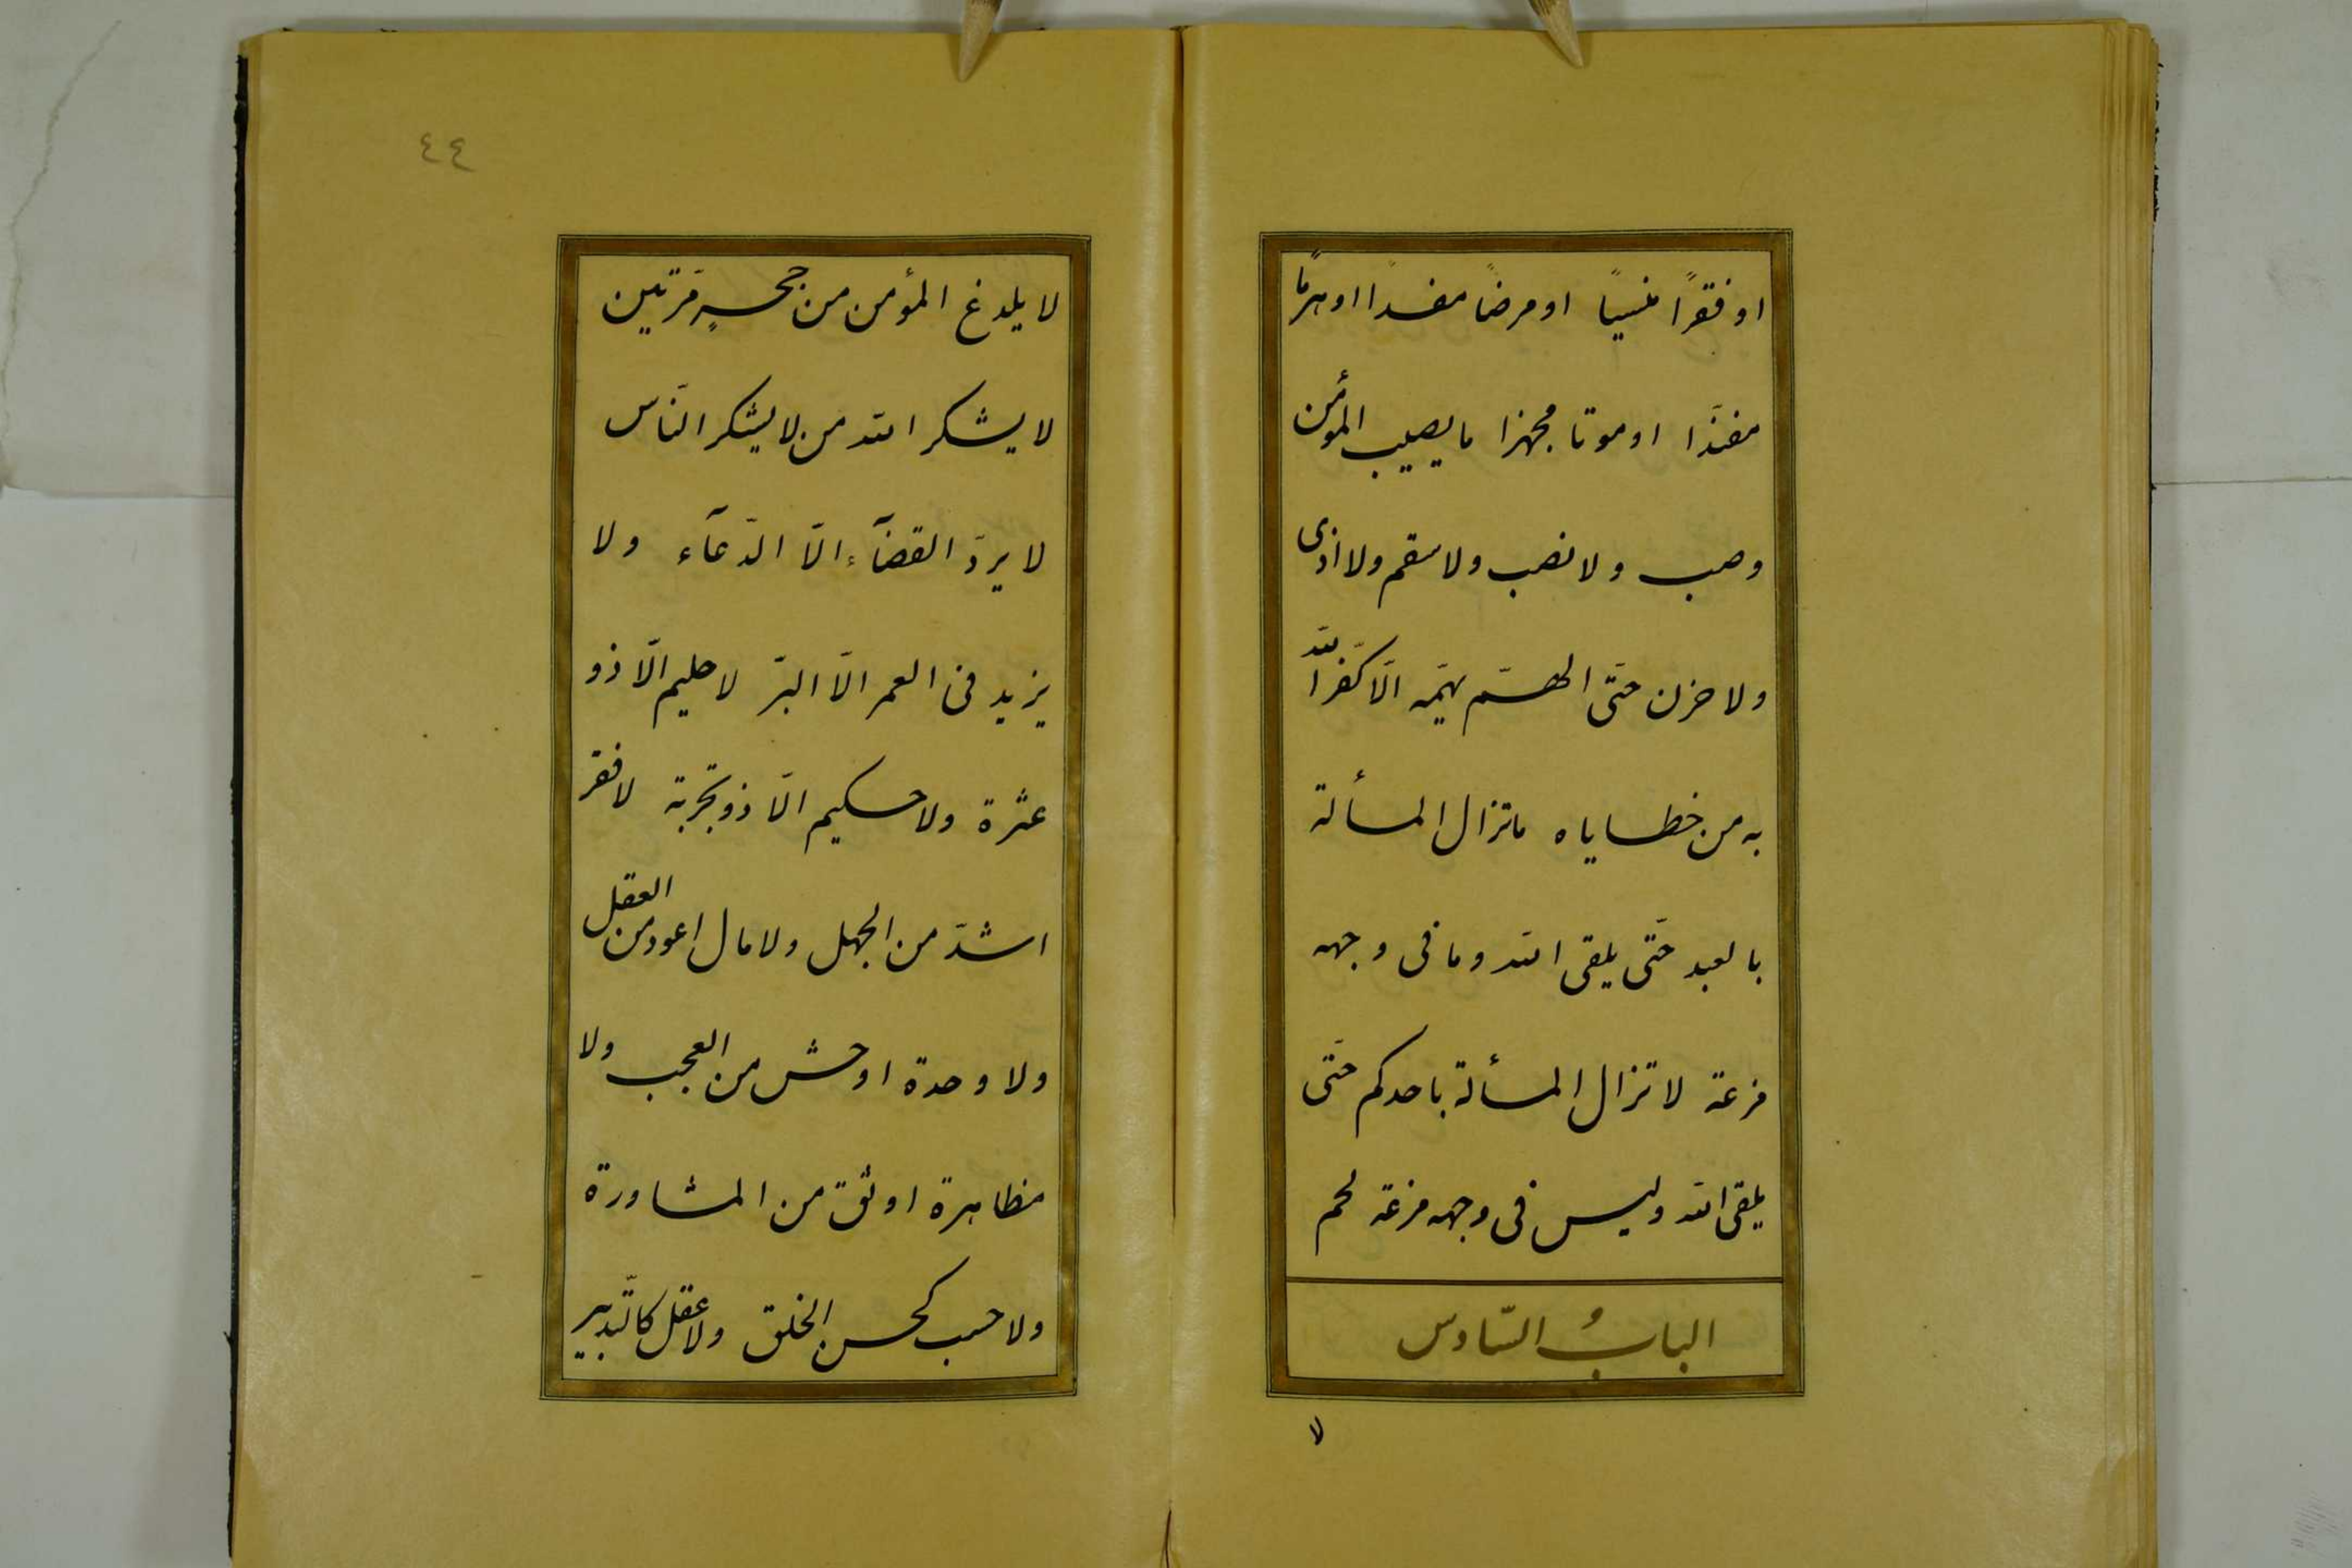 او فقرًا منسیًا او مرضًا مفسدًا او هرمًا
مفندًا او موتا مجهزا ما یصیب المؤمن
وصب ولا نصب ولا سقم ولا اذی
ولا حزن حتّی الهمّ یهمّه الّا کفّر الله
به من خطایاه ما تزال المسألة
بالعبد حتّی یلقی الله وما فی وجهه
مزعة لا تزال المسألة باحدکم حتّی
یلقی الله ولیس فی وجهه مزعة لحم
البابُ السّادس
لا
٤٤
لا یلدغ المؤمن من جحرٍ مرّتین
لا یشکر الله من لا یشکر النّاس
لا یردّ القضآء الّا الدّعآء ولا
یزید فی العمر الّا البرّ لا حلیم الّا ذو
عثرة ولا حکیم الّا ذو تجربة لا فقر
اشدّ من الجهل ولا مال اعود من العقل
ولا وحدة اوحش من العجب ولا
مظاهرة اوثق من المشاورة
ولا حسب کحسن الخلق ولا عقل کالتّدبیر